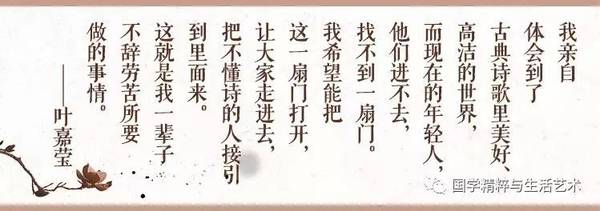 我亲自
体会到了
古典诗歌里美好、
高洁的世界，
而现在的年轻人，
他们进不去，
找不到一扇门。
我希望能把
这一扇门打开，
让大家走进去，
把不懂诗的人接引
到里面来。
这就是我一辈子
不辞劳苦所要
做的事情。
——叶嘉莹
国学精粹与生活艺术